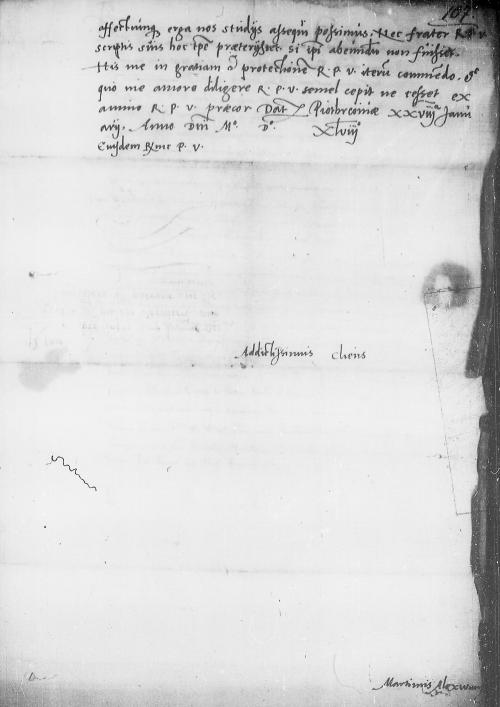 107
affectumq erga nos studijs assequi possimus. Nec frater R. P. V.
scriptis suis hoc tpe præterijsset si ipi abeundu non fuisset.
His me in gratiam et protectione R. P. V. iteru commedo. et
quo me amore diligere R. P. V. semel cepit ne cesset ex
animo R. P. V. præcor Dat Piotrcouiæ XXVIII Janu
arij. Anno Dni Mo. Do. XLviijo
Eiusdem R. P. V.
Addictissimus Cliens
Martinus